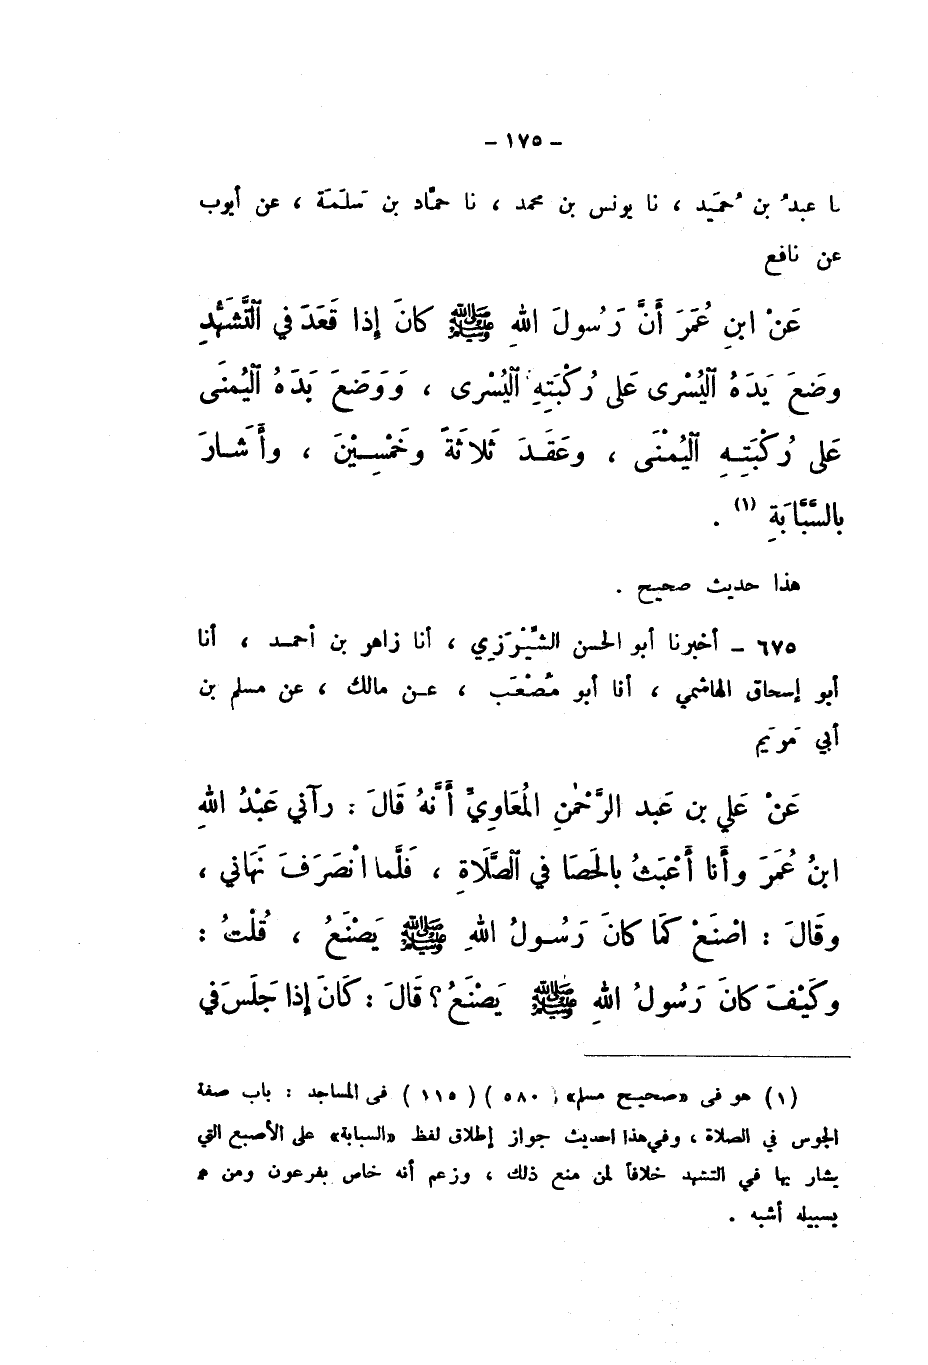 – ١٧٥ –
نا عبدُ بن حُمَيد ، نا يونس بن محمد ، نا حمَّاد بن سَلَمَة ، عن أيوب
عن نافع
عَنْ ابنِ عُمَرَ أَنَّ رَسُولَ اللهِ ﷺ كانَ إِذا قَعَدَ في التَّشَهُّدِ
وضَعَ يَدَهُ اليُسْرى عَلى رُكْبَتِهِ اليُسْرى ، وَوَضَعَ يَدَهُ اليُمنَى
عَلى رُكْبَتِـهِ اليُمْنَى ، وعَقَـدَ ثَلاثَةً وخَمْسِـيْنَ ، وأَشـارَ
بالسَّبَّابَةِ (١) .
هذا حديث صحيح .
٦٧٥ – أخبرنا أبو الحسن الشِّيْرَزِي ، أنا زاهر بن أحمـد ، أنا
أبو إسحاق الهاشمي ، أنا أبو مُصْعَب ، عـن مالك ، عن مسلم بن
أبي مَرْيَم
عَنْ عَلي بن عَبد الرَّحْمٰنِ المُعَاوِيِّ أَنَّهُ قَالَ : رآني عَبْدُ اللهِ
ابنُ عُمَرَ وأَنا أَعْبَثُ بالحَصَا في الصَّلَاةِ ، فَلَّما انْصَرَفَ نَهَاني ،
وقَالَ : اصْنَعْ كَمَا كانَ رَسُـولُ اللهِ ﷺ يَصْنَعُ ، قُلْتُ :
وكَيْفَ كانَ رَسُولُ اللهِ ﷺ يَصْنَعُ؟ قَالَ : كَانَ إِذا جَلَسَ في
(١) هو في «صحيـح مسلم» ( ٥٨٠ ) ( ١١٥ ) في المساجد : باب صفة
الجلوس في الصلاة ، وفي هذا الحديث جواز إطلاق لفظ «السبابة» على الأصبع التي
يشار بها في التشهد خلافاً لمن منع ذلك ، وزعم أنه خاص بفرعون ومن هو
بسبيله أشبه .